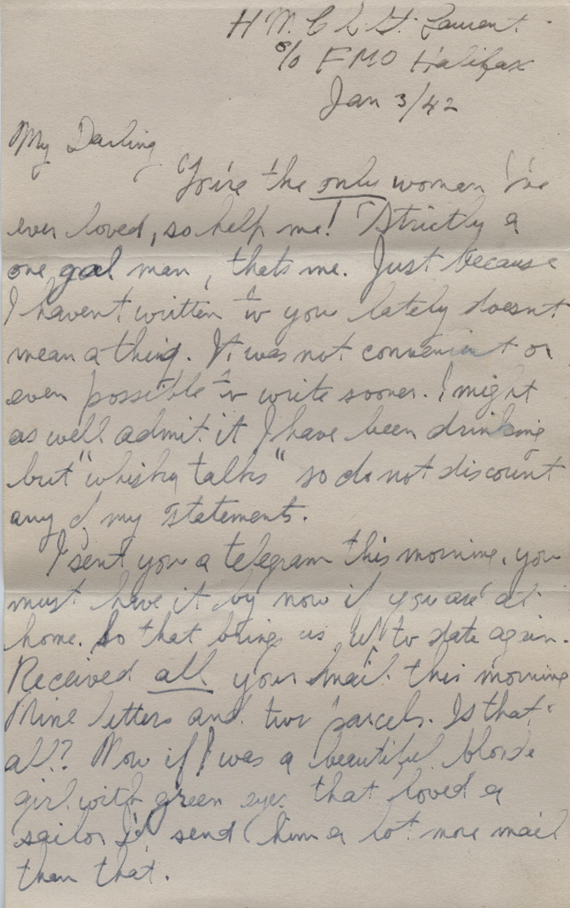 H M C S St. Laurent.
c/o FMO Halifax
Jan 3/42
My Darling
You're the only woman I've
ever loved, so help me! Strictly a
one gal man, thats me. Just because
I havent written to you lately doesnt
mean a thing. It was not convenient or
even possible to write sooner. I might
as well admit it I have been drinking
but "whisky talks" so do not discount
any of my statements.
I sent you a telegram this morning, you
must have it by now if you are at
home. So that brings us up to date again.
Received all your mail this morning
Nine letters and two parcels. Is that
all? Now if I was a beautiful blonde
girl with green eyes that loved a
sailor I'd send him a lot more mail
than that.